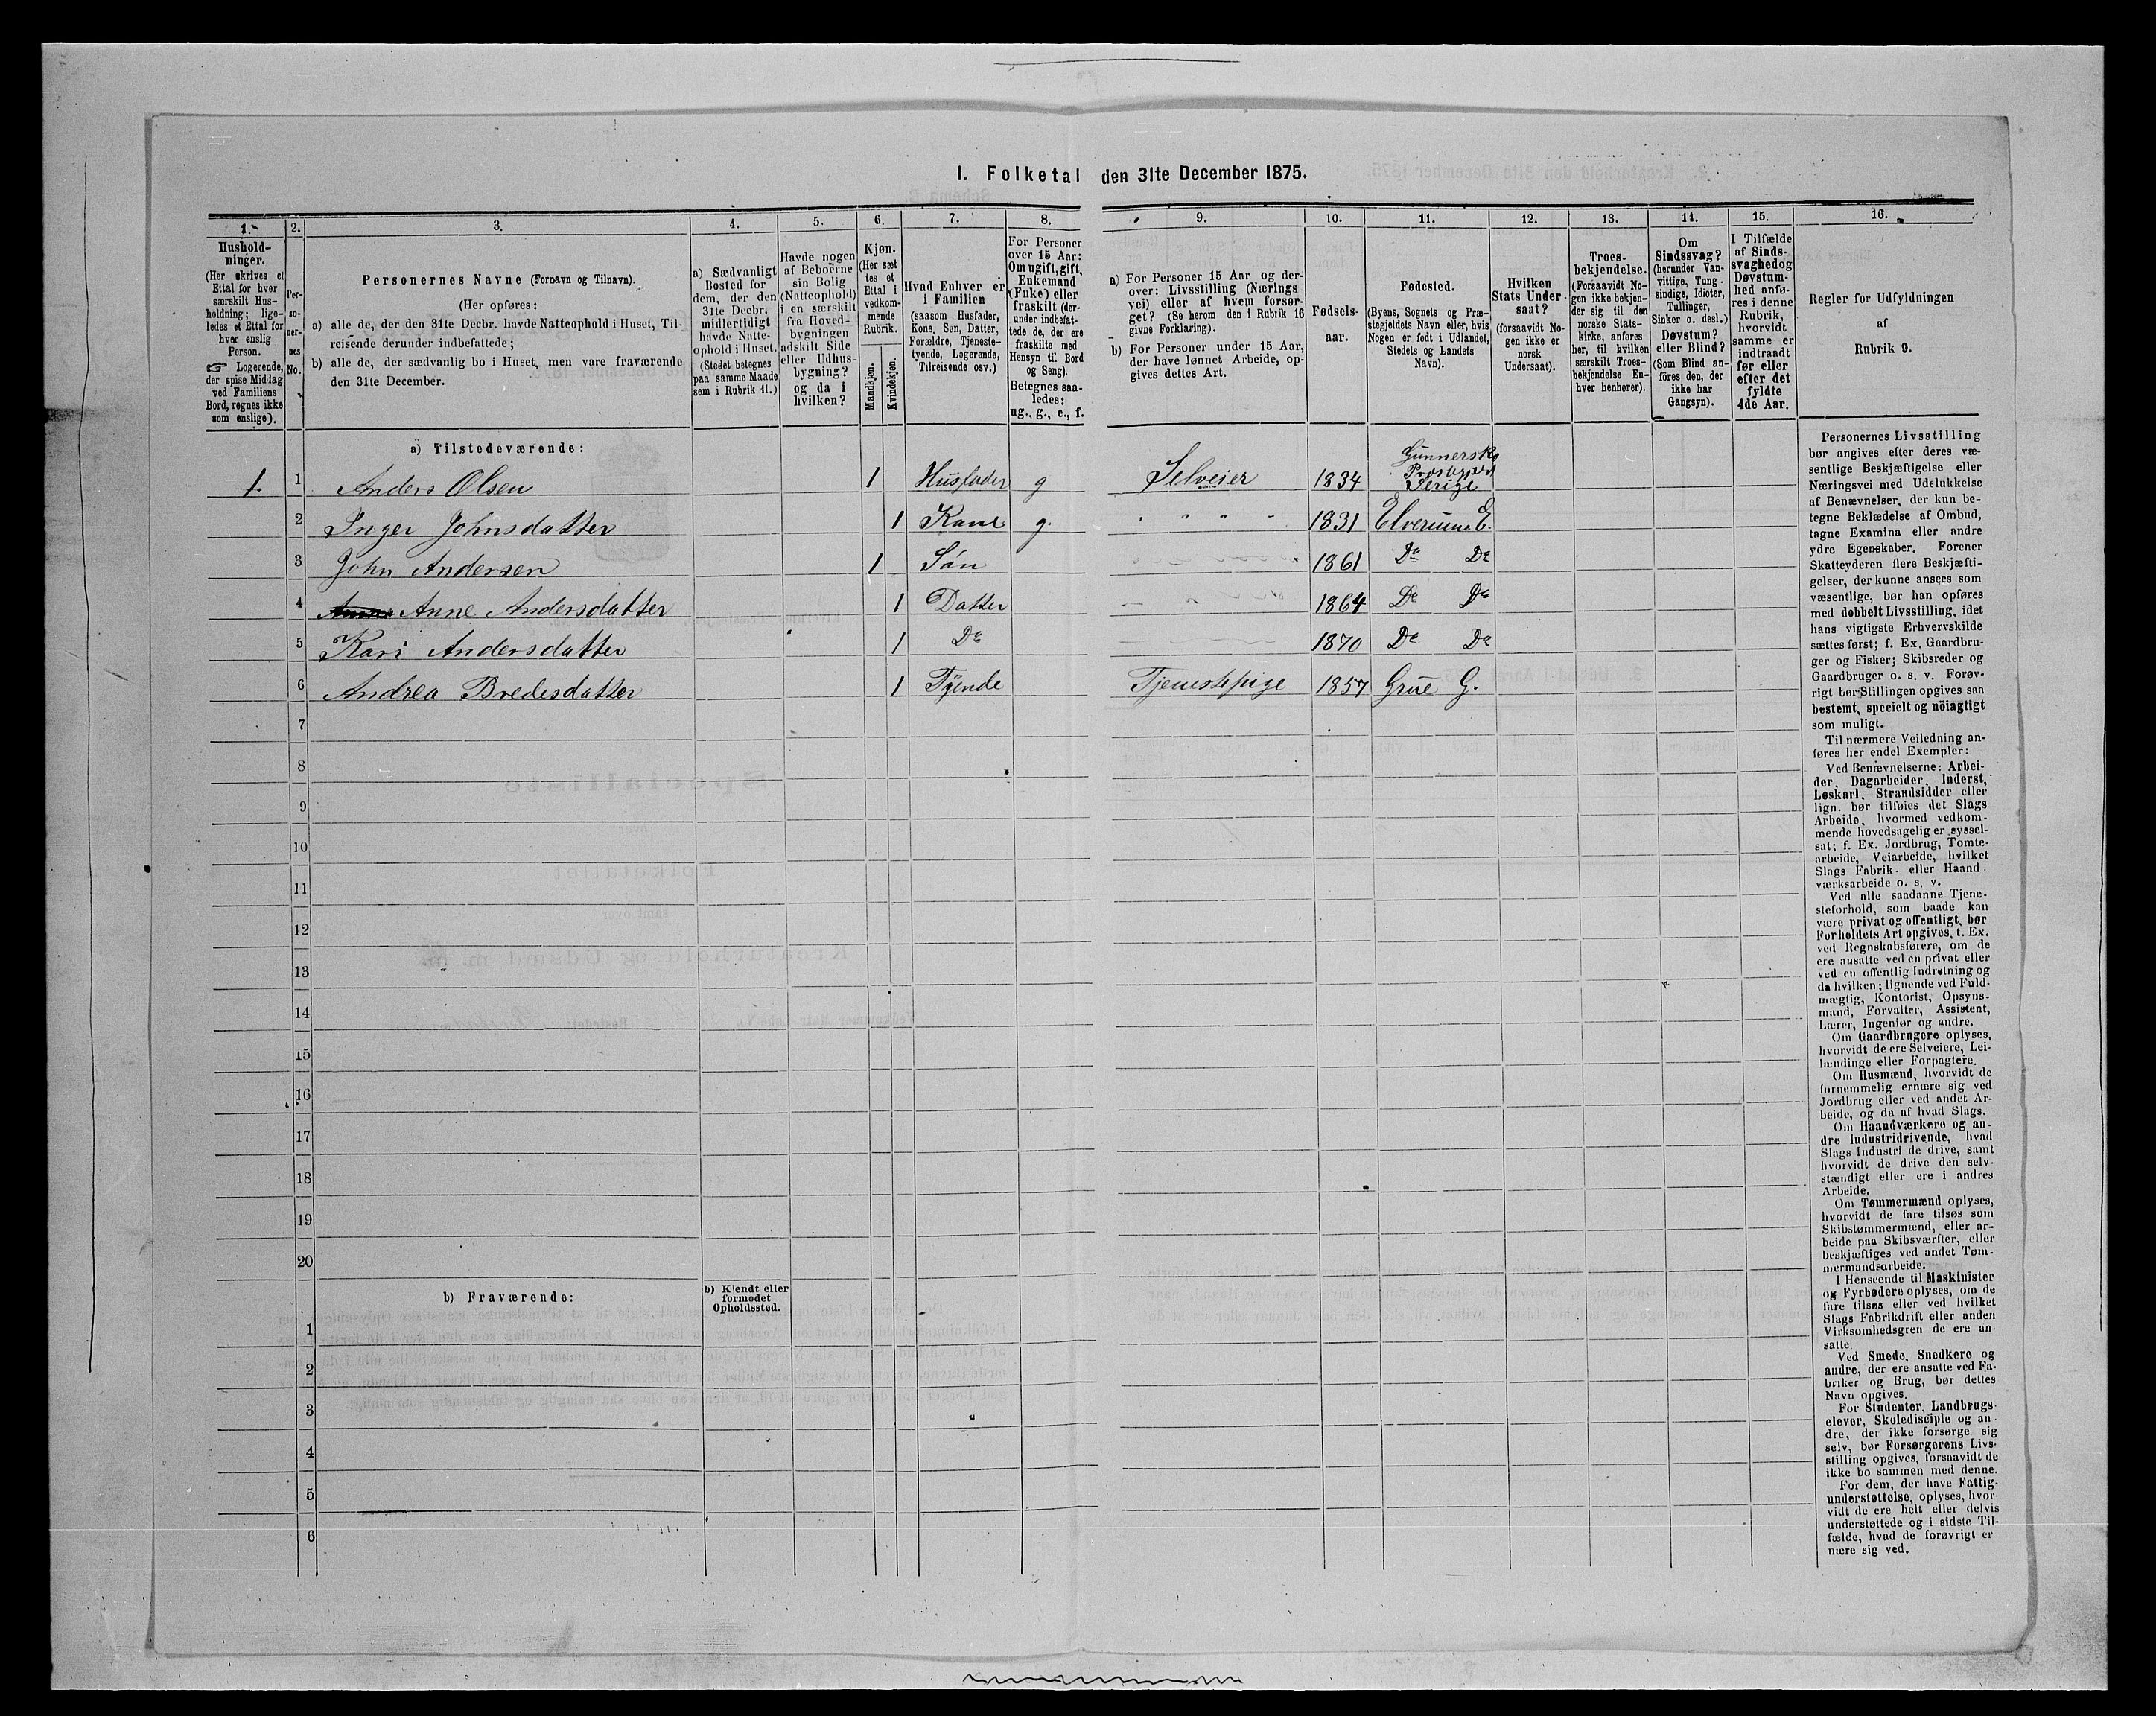 1. Folketal den 31te December 1875.
1. 2. 3. 4. 5. 6. 7. 8. 9. 10. 11. 12. 13. 14. 15. 16.
Hushold-
ninger.
(Her skrives et
Ettal for hver
særskilt Hus-
holdning; lige-
ledes et Ettal for
hver enslig
Person.
☞ Logerende,
der spise Middag
ved Familiens
Bord, regnes ikke
som enslige).
Per-
so-
ner-
nes
No.
Personernes Navne (Fornavn og Tilnavn).
(Her opføres:
a) alle de, der den 31te Decbr. havde Natteophold i Huset, Til-
reisende derunder indbefattede;
b) alle de, der sædvanlig bo i Huset, men vare fraværende
den 31te December.
a) Sædvanligt
Bosted for
dem, der den
31te Decbr.
midlertidigt
havde Natte-
ophold i Huset.
(Stedet betegnes
paa samme Maade
som i Rubrik 11.)
Havde nogen
af Beboerne
sin Bolig
(Natteophold)
i en særskilt
fra Hoved-
bygningen
adskilt Side
eller Udhus-
bygning?
og da i
hvilken?
Kjøn.
(Her sæt
tes et
Ettal i
vedkom-
mende
Rubrik.
Mandkjøn.
Kvindekjøn.
Hvad Enhver er
i Familien
(saasom Husfader,
Kone, Søn, Datter,
Forældre, Tjeneste-
tyende, Logerende,
Tilreisende osv.)
For Personer
over 15 Aar:
Om ugift, gift,
Enkemand
(Enke) eller
fraskilt (der-
under indbefat-
tede de, der ere
fraskilte med
Hensyn til Bord
og Seng).
Betegnes saa-
ledes:
ug., g., e., f.
a) For Personer 15 Aar og der-
over: Livsstilling (Nærings
vei) eller af hvem forsør-
get? (Se herom den i Rubrik 16
givne Forklaring).
b) For Personer under 15 Aar,
der have lønnet Arbeide, op-
gives dettes Art.
Fødsels-
aar.
Fødested.
(Byens, Sognets og Præ-
stegjeldets Navn eller, hvis
Nogen er født i Udlandet,
Stedets og Landets
Navn).
Hvilken
Stats Under-
saat?
(forsaavidt No-
gen ikke er
norsk
Undersaat).
Troes-
bekjendelse.
(Forsaavidt No-
gen ikke bekjen-
der sig til den
norske Stats-
kirke, anføres
her, til hvilken
særskilt Troes-
bekjendelse En-
hver henhører).
Om
Sindssvag?
(herunder Van-
vittige, Tung-
sindige, Idioter,
Tullinger,
Sinker o. desl.)
Døvstum?
eller Blind?
(Som Blind an-
föres den, der
ikke har
Gangsyn).
I Tilfælde
af Sinds-
svaghed og
Døvstum-
hed anfø-
res i denne
Rubrik,
hvorvidt
samme er
indtraadt
før eller
efter det
fyldte
4de Aar.
Regler for Udfyldningen
af
Rubrik 9.
a) Tilstedeværende:
1. 1 Anders Olsen 1 Husfader g Selveier 1834 Gunnersko Prostegjeld Serige
2 Inger Johnsdatter 1 Kone g. " " " " 1831 Elverum E.
3 John Andersen 1 Søn 1861 Do Do
4 Anne Andersdatter 1 Datter 1864 Do Do
5 Kari Andersdatter 1 Do 1870 Do Do
6 Andrea Bredesdatter 1 Tyende Tjenestepige 1857 Grue G.
7
8
9
10
11
12
13
14
15
16
17
18
19
20
b) Fraværende:
b) Kjendt eller
formodet
Opholdssted.
1
2
3
4
5
6
Personernes Livsstilling
bør angives efter deres væ-
sentlige Beskjæftigelse eller
Næringsvei med Udelukkelse
af Benævnelser, der kun be-
tegne Beklædelse af Ombud,
tagne Examina eller andre
ydre Egenskaber. Forener
Skatteyderen flere Beskjæfti-
gelser, der kunne ansees som
væsentlige, bør han opføres
med dobbelt Livsstilling, idet
hans vigtigste Erhvervskilde
sættes først; f. Ex. Gaardbru-
ger og Fisker; Skibsreder og
Gaardbruger o. s. v. Forøv-
rigt bør Stillingen opgives saa
bestemt, specielt og nöiagtigt
som muligt.
Til nærmere Veiledning an-
føres her endel Exempler:
Ved Benævnelserne: Arbei-
der, Dagarbeider, Inderst,
Løskarl, Strandsidder eller
lign. bør tilføies det Slags
Arbeide, hvormed vedkom-
mende hovedsagelig er syssel-
sat; f. Ex. Jordbrug, Tomte-
arbeide, Veiarbeide, hvilket
Slags Fabrik- eller Haand-
værksarbeide o. s. v.
Ved alle saadanne Tjene-
steforhold, som baade kan
være privat og offentligt, bør
Forholdets Art opgives, t. Ex.
ved Regnskabsførere, om de
ere ansatte ved en privat eller
ved en offentlig Indretning og
da hvilken; lignende ved Fuld-
mægtig, Kontorist, Opsyns-
mand, Forvalter, Assistent,
Lærer, Ingeniør og andre.
Om Gaardbrugere oplyses,
hvorvidt de ere Selveiere, Lei-
lændinge eller Forpagtere.
Om Husmænd, hvorvidt de
fornemmelig ernære sig ved
Jordbrug eller ved andet Ar-
beide, og da af hvad Slags.
Om Haandværkere og an-
dre Industridrivende, hvad
Slags Industri de drive, samt
hvorvidt de drive den selv-
stændigt eller ere i andres
Arbeide.
Om Tømmermænd oplyses,
hvorvidt de fare tilsøs som
Skibstømmermænd, eller ar-
beide paa Skibsværfter, eller
beskjæftiges ved andet Tøm-
mermandsarbeide.
I Henseende til Maskinister
og Fyrbødere oplyses, om de
fare tilsøs eller ved hvilket
Slags Fabrikdrift eller anden
Virksomhedsgren de ere an-
satte.
Ved Smede, Snedkere og
andre, der ere ansatte ved Fa-
briker og Brug, bør dettes
Navn opgives.
For Studenter, Landbrugs-
elever, Skoledisciple og an-
dre, der ikke forsørge sig
selv, bør Forsørgerens Livs-
stilling opgives, forsaavidt de
ikke bo sammen med denne.
For dem, der have Fattig-
understøttelse, oplyses, hvor-
vidt de ere helt eller delvis
understøttede og i sidste Til-
fælde, hvad de forøvrigt er
nære sig ved.